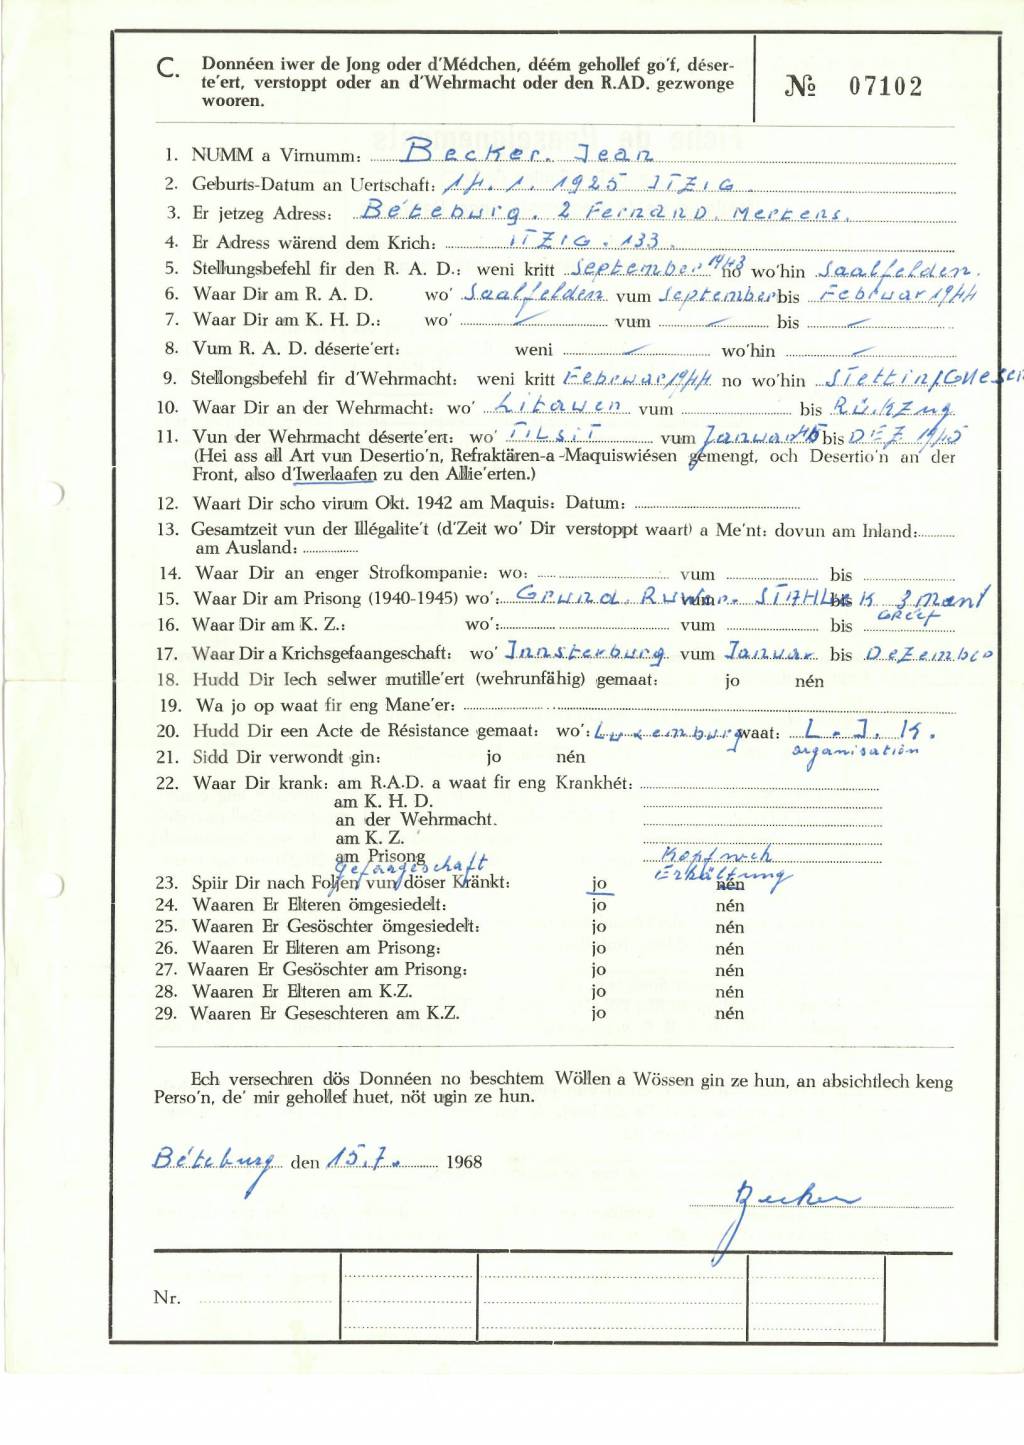 C. Donnéen iwer de Jong oder d'Médchen, déém gehollef go'f, déser-
te'ert, verstoppt oder an d'Wehrmacht oder den R.AD. gezwonge
wooren.
№ 07102
1. NUMM a Virnumm: Becker. Jean
2. Geburts-Datum an Uertschaft: 14. 1. 1925 ITZIG.
3. Er jetzeg Adress: Béteburg. 2 Fernand. Mertens.
4. Er Adress wärend dem Krich: ITZIG. 133.
5. Stellungsbefehl fir den R. A. D.: weni kritt September 1943 no wo'hin Saalfelden.
6. Waar Dir am R. A. D. wo' Saalfelden vum September bis Februar 1944
7. Waar Dir am K. H. D.: wo' — vum — bis —
8. Vum R. A. D. déserte'ert: weni — wo'hin —
9. Stellongsbefehl fir d'Wehrmacht: weni kritt Februar 1944 no wo'hin Stettin/Gnesen
10. Waar Dir an der Wehrmacht: wo' Litawen vum bis Rückzug
11. Vun der Wehrmacht déserte'ert: wo' TILSIT vum Januar 45 bis DEZ 1945
(Hei ass all Art vun Desertio'n, Refraktären-a-Maquiswiésen gemengt, och Desertio'n an der
Front, also d'Iwerlaafen zu den Allie'erten.)
12. Waart Dir scho virum Okt. 1942 am Maquis: Datum:
13. Gesamtzeit vun der Illégalite't (d'Zeit wo' Dir verstoppt waart) a Me'nt: dovun am Inland:
am Ausland:
14. Waar Dir an enger Strofkompanie: wo: vum bis
15. Waar Dir am Prisong (1940-1945) wo': Grund. vum STAHLECK bis 3 Mont
16. Waar Dir am K. Z.: wo': vum bis
17. Waar Dir a Krichsgefaangeschaft: wo' Innsterburg vum Januar bis Dezember
18. Hudd Dir Iech selwer mutille'ert (wehrunfähig) gemaat: jo nén
19. Wa jo op waat fir eng Mane'er:
20. Hudd Dir een Acte de Résistance gemaat: wo': Luxemburg waat: L. J. K.
organisation
21. Sidd Dir verwondt gin: jo nén
22. Waar Dir krank: am R.A.D. a waat fir eng Krankhét:
am K. H. D.
an der Wehrmacht.
am K. Z.
am Prisong Kopfweh
Gefaageschaft Erkältung
23. Spiir Dir nach Folgen vun döser Kränkt: jo nén
24. Waaren Er Elteren ömgesiedelt: jo nén
25. Waaren Er Gesöschter ömgesiedelt: jo nén
26. Waaren Er Elteren am Prisong: jo nén
27. Waaren Er Gesöschter am Prisong: jo nén
28. Waaren Er Elteren am K.Z. jo nén
29. Waaren Er Geseschteren am K.Z. jo nén
Ech versechren dös Donnéen no beschtem Wöllen a Wössen gin ze hun, an absichtlech keng
Perso'n, de' mir gehollef huet, nöt ugin ze hun.
Béteburg den 15.7. 1968
Becker
Nr.